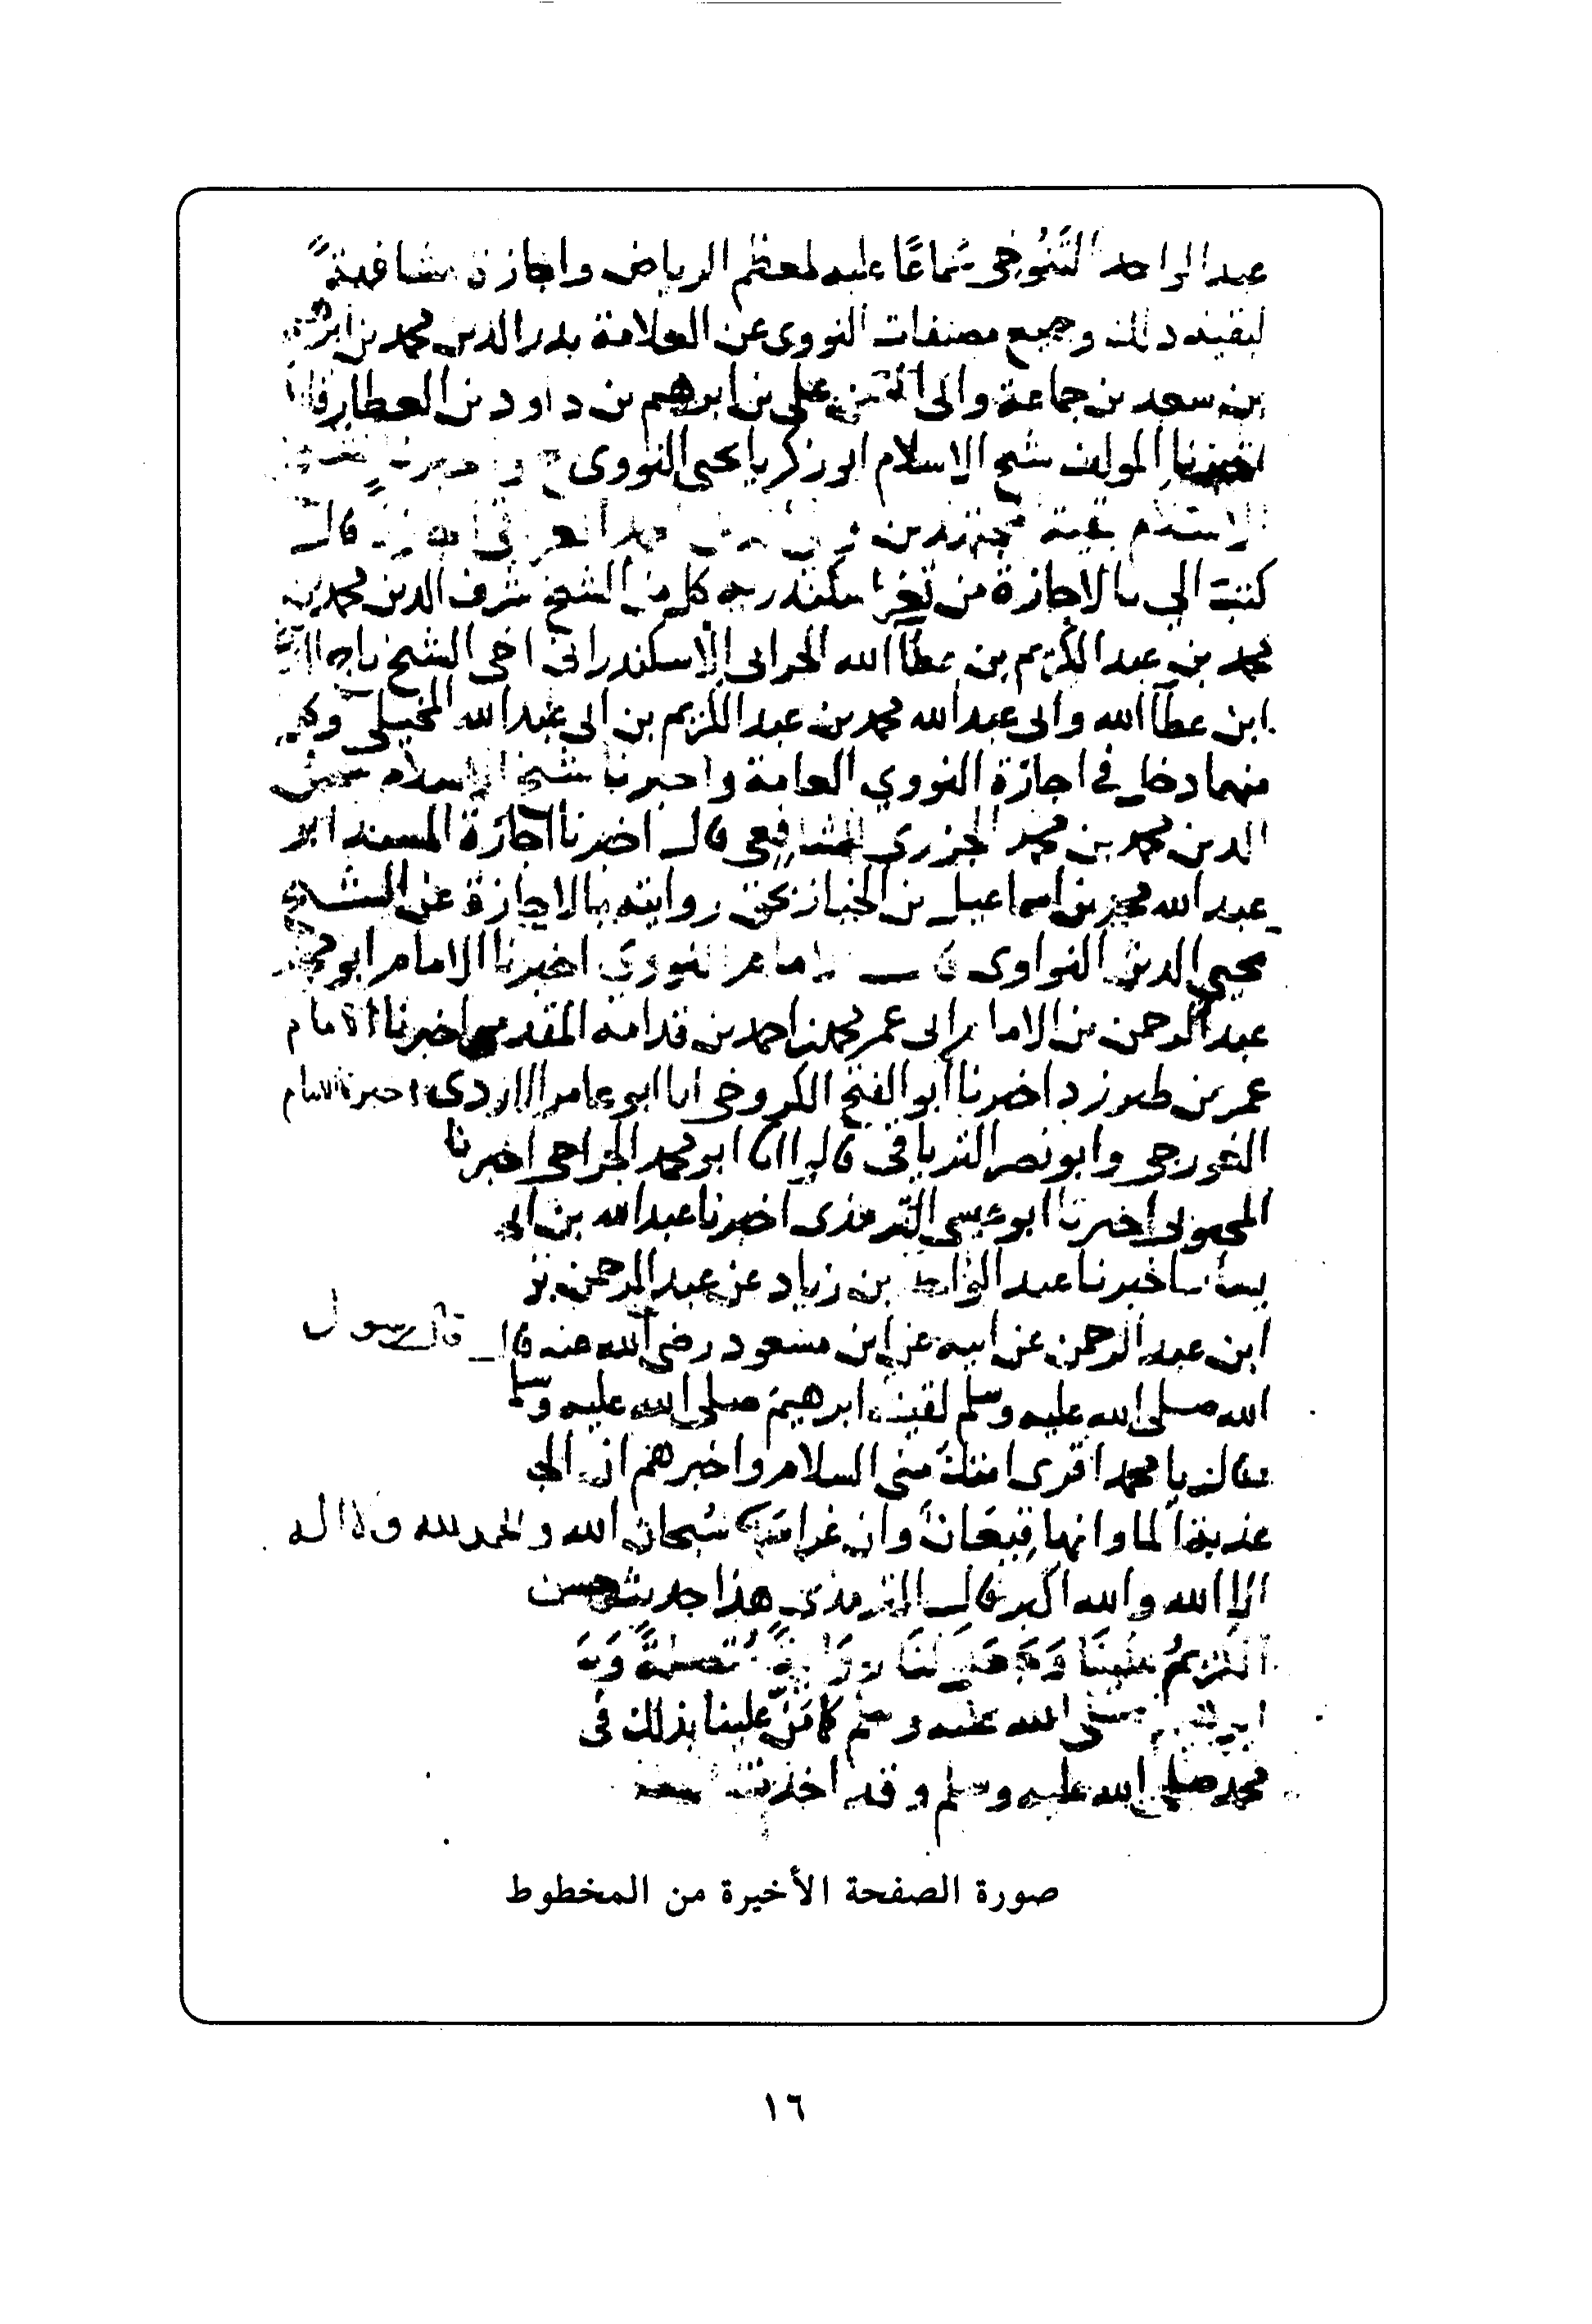 عبد الواحد التَّنُوخي سَمَاعًا عليه لمعظم الرياض واجازة مشافهةً
لبقيته ذلك وجميع مصنفات النووي عن العلامة بدر الدين محمد بن ابرهيم
بن سعد بن جماعة وابي الحسن علي بن ابرهيم بن داود بن العطار قالا
اخبرنا المولف شيخ الاسلام ابو زكريا يحيى النووي ح
الاسلام بقية قال
كتبت الي بالاجازة من ثغر اسكندريه كل من الشيخ شرف الدين محمد بن
محمد بن عبد الكريم بن عطآ الله الاسكندراني اخي الشيخ تاج
ابن عطآ الله وابي عبد الله محمد بن عبد الكريم بن ابي عبد الله
منهما دخل في اجازة النووي العامة واخبرنا شيخ الاسلام شمس
الدين محمد بن محمد الجزري الشافعي قال اخبرنا اجازة المسند ابو
عبد الله محمد بن اسماعيل بن الخباز بحق روايته بالاجازة عن الشيخ
محيي الدين النواوي قال الامام النووي اخبرنا الامام ابو محمد
عبد الرحمن بن الامام ابي عمر محمد بن احمد بن قدامة المقدسي اخبرنا الامام
عمر بن طبرزد اخبرنا ابو الفتح الكروخي انا ابو عامر الازدي اخبرنا الامام
الغورجي وابو نصر الترياقي قالوا انا ابو محمد الجراحي اخبرنا
المحبوبي اخبرنا ابو عيسى الترمذي اخبرنا عبد الله بن ابي
اخبرنا عبد الواحد بن زياد عن عبد الرحمن بن
ابن عبد الرحمن عن ابيه عن ابن مسعود رضي الله عنه قال قال رسول
الله صلى الله عليه وسلم لقيت ابرهيم صلى الله عليه وسلم
فقال يا محمد اقرى امتك مني السلام واخبرهم ان
عذبة الما وانها قيعان وان غراسها سُبحان الله والحمد لله ولا اله
الا الله والله اكبر قال الترمذي هذا حديث حسن
الكريمُ علينا وَجَعَل لنَا
صلى الله عليه وسلم كما مَنَّ علينا بذلك في
محمد صلى الله عليه وسلم وقد اخذت
صورة الصفحة الأخيرة من المخطوط
١٦